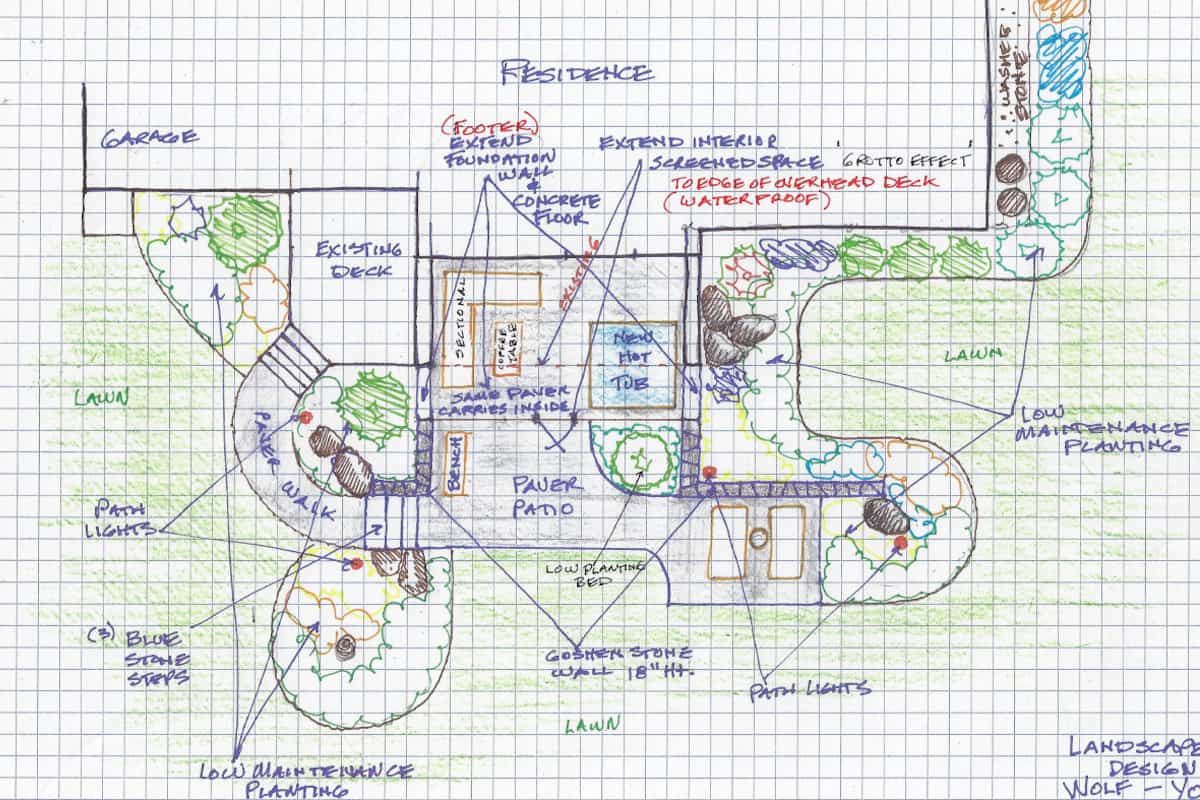 RESIDENCE
WASHED
STONE
GARAGE
(FOOTER)
EXTEND
FOUNDATION
WALL
&
CONCRETE
FLOOR
EXTEND INTERIOR
SCREENED SPACE
TO EDGE OF OVERHEAD DECK
(WATERPROOF)
'GROTTO EFFECT'
EXISTING
DECK
EXISTING
SECTIONAL
COFFEE
TABLE
NEW
HOT
TUB
SAME PAVER
CARRIES INSIDE
LAWN
LAWN
LOW
MAINTENANCE
PLANTING
PAVER WALK
BENCH
PAVER
PATIO
PATH
LIGHTS
LOW PLANTING
BED
(3) BLUE
STONE
STEPS
GOSHEN STONE
WALL 18" HT.
PATH LIGHTS
LAWN
LOW MAINTENANCE
PLANTING
LANDSCAPE
DESIGN
WOLF -